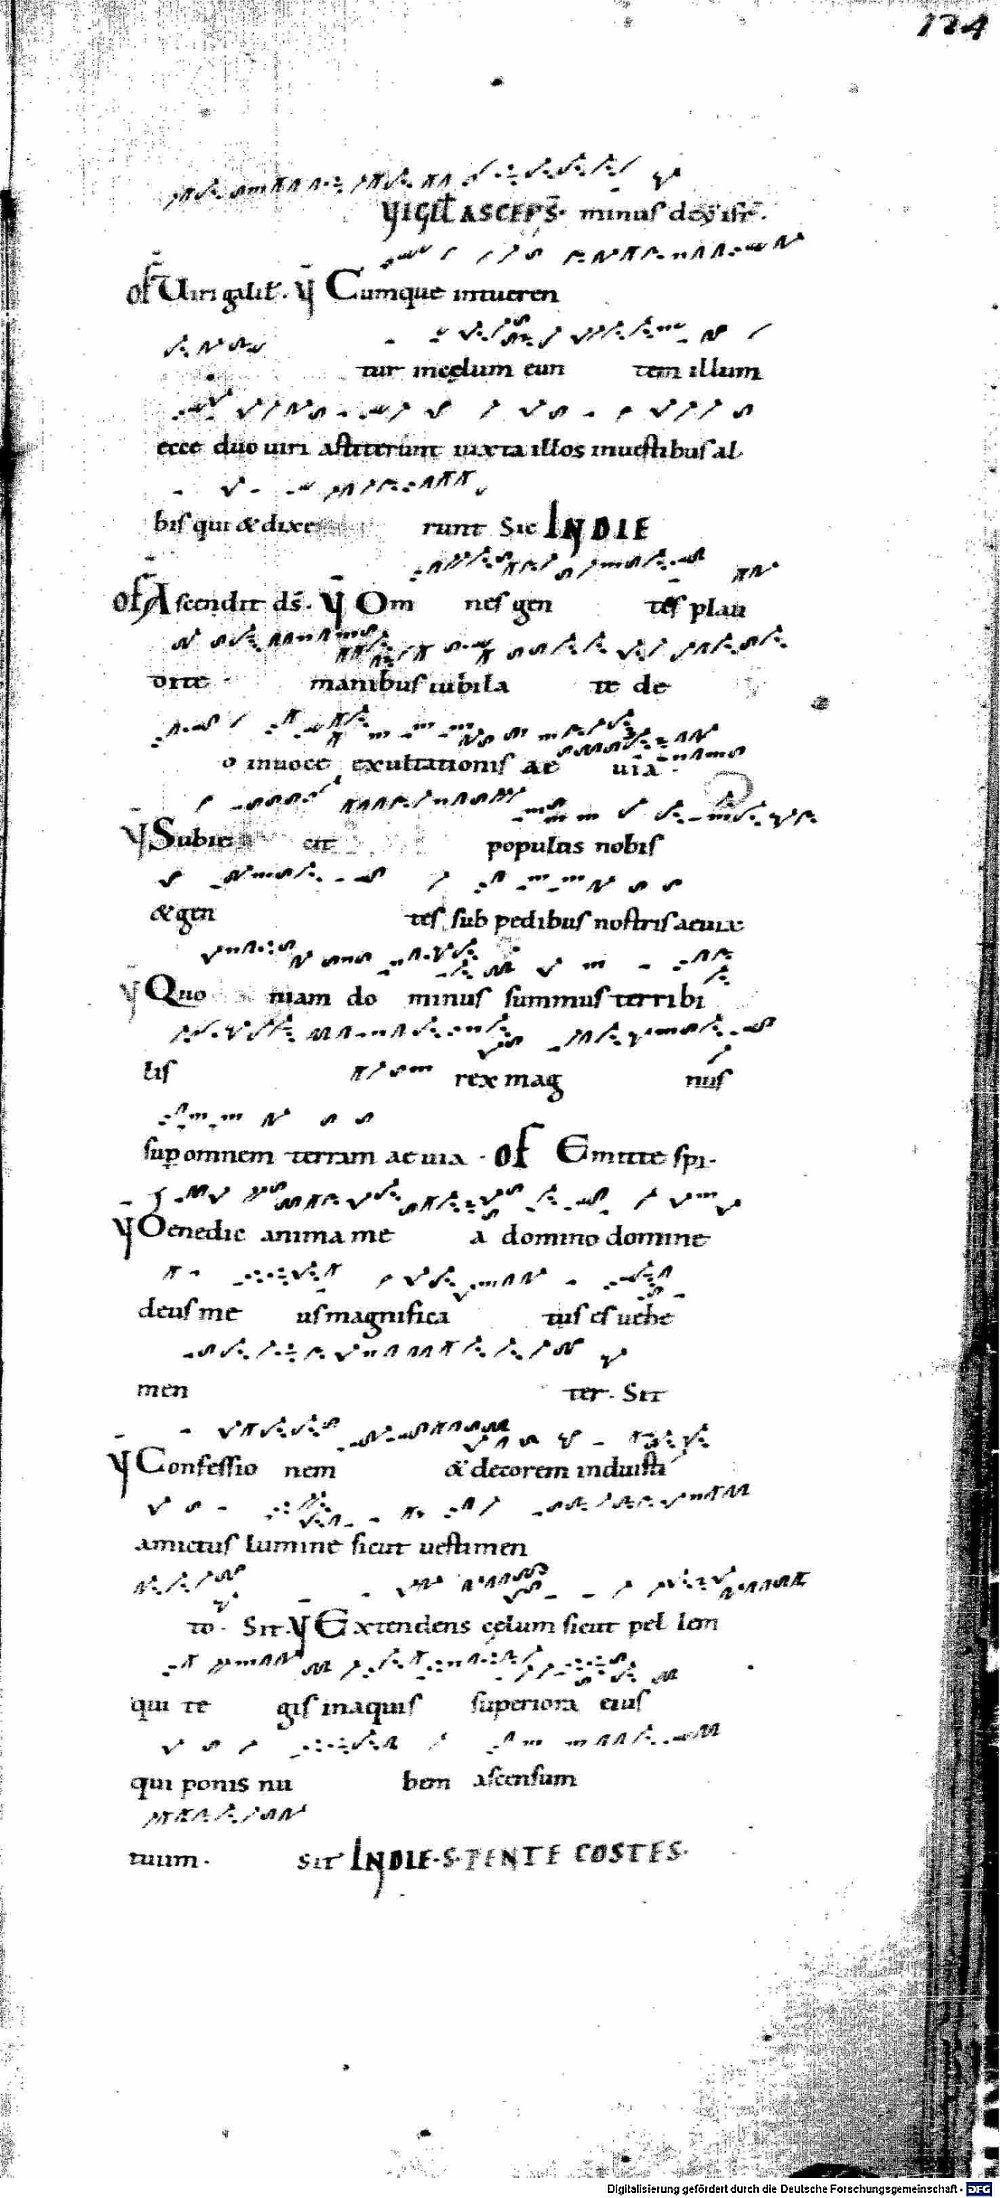 124
VIGIL ASCEPS̄. minus dēx isr̄.
OF Uiri galil. V̄ Cumque intueren
tur incęlum eun tem illum
ecce duo uiri astiterunt iuxta illos inuestibus al
bis qui &dixe runt Sic IN DIE
OF Ascendit ds̄. V̄ Om nes gen tes plau
dite manibus iubila te de
o inuoce exultationis ae uia
V̄ Subie cit populus nobis
&gen tes sub pedibus nostris aeuia
V̄ Quo niam do minus summus terribi
lis rex mag nus
sup omnem terram aeuia. OF Emitte spi.
V̄ Benedic anima me a domino domine
deus me us magnifica tus es uehe
men ter. Sit
V̄ Confessio nem & decorem induisti
amictus lumine sicut uestimen
to. Sit. V̄ Extendens cęlum sicut pel lem
qui te gis inaquis superiora eius
qui ponis nu bem ascensum
tuum. Sit IN DIE. S. PENTE COSTES.
Digitalisierung gefördert durch die Deutsche Forschungsgemeinschaft - DFG